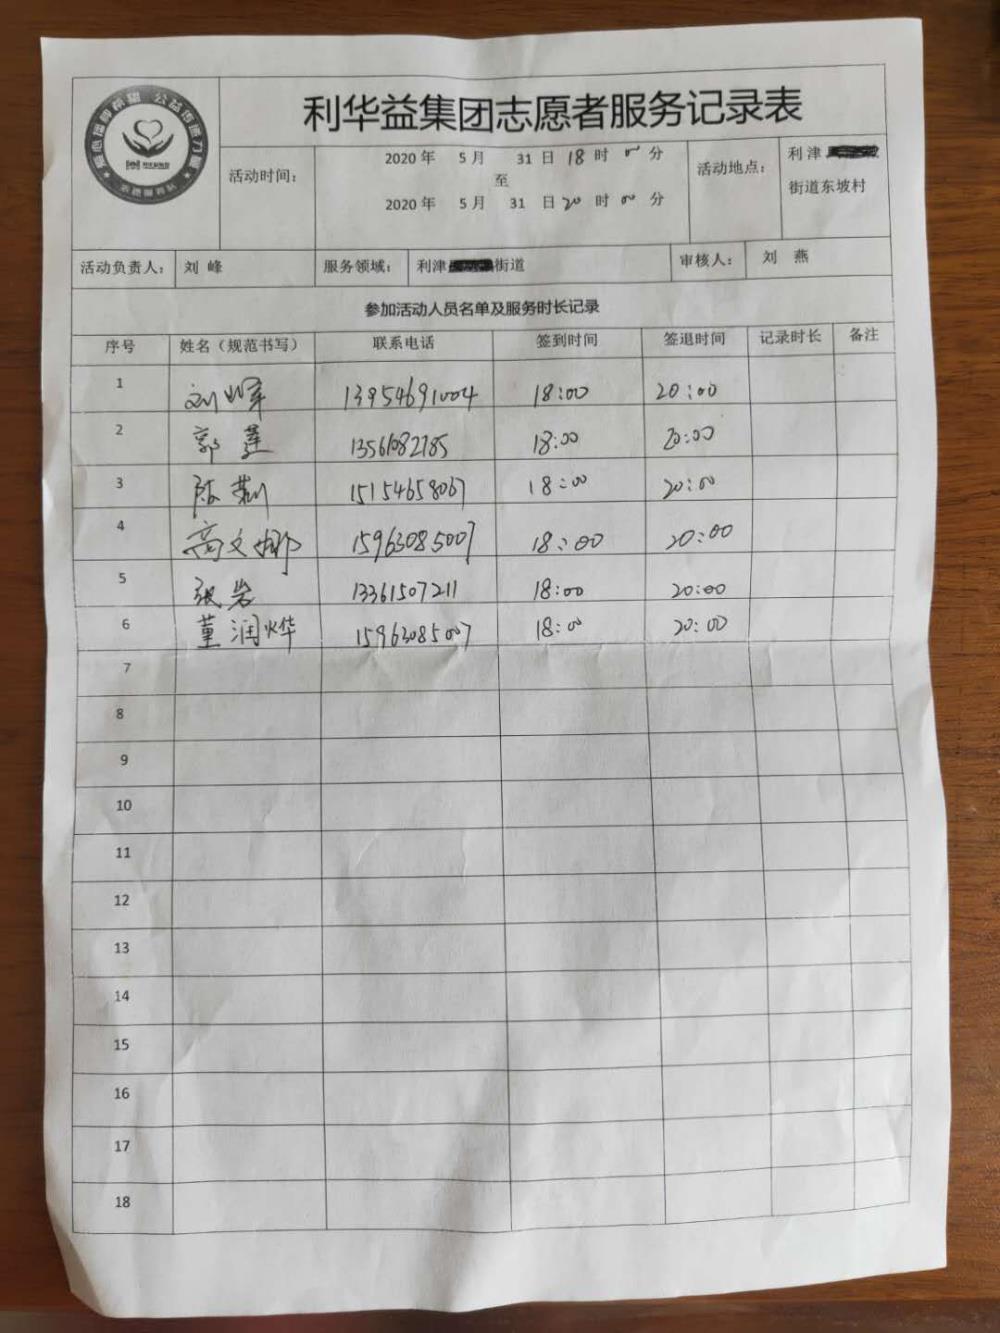 利华益集团志愿者服务记录表
活动时间： 2020 年 5 月 31 日 18 时 00 分
至
2020 年 5 月 31 日 20 时 00 分
活动地点： 利津
街道东坡村
活动负责人： 刘 峰 服务领域： 利津 街道 审核人： 刘 燕
参加活动人员名单及服务时长记录
序号 姓名（规范书写） 联系电话 签到时间 签退时间 记录时长 备注
1 刘峰 13954691004 18:00 20:00
2 郭莲 13561082785 18:00 20:00
3 陈荆 15154658067 18:00 20:00
4 高文娜 15963085007 18:00 20:00
5 张岩 13361507211 18:00 20:00
6 董润烨 15963085007 18:00 20:00
7
8
9
10
11
12
13
14
15
16
17
18